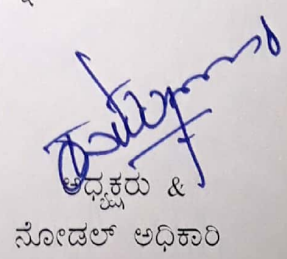 ಅಧ್ಯಕ್ಷರು &
ನೋಡಲ್ ಅಧಿಕಾರಿ